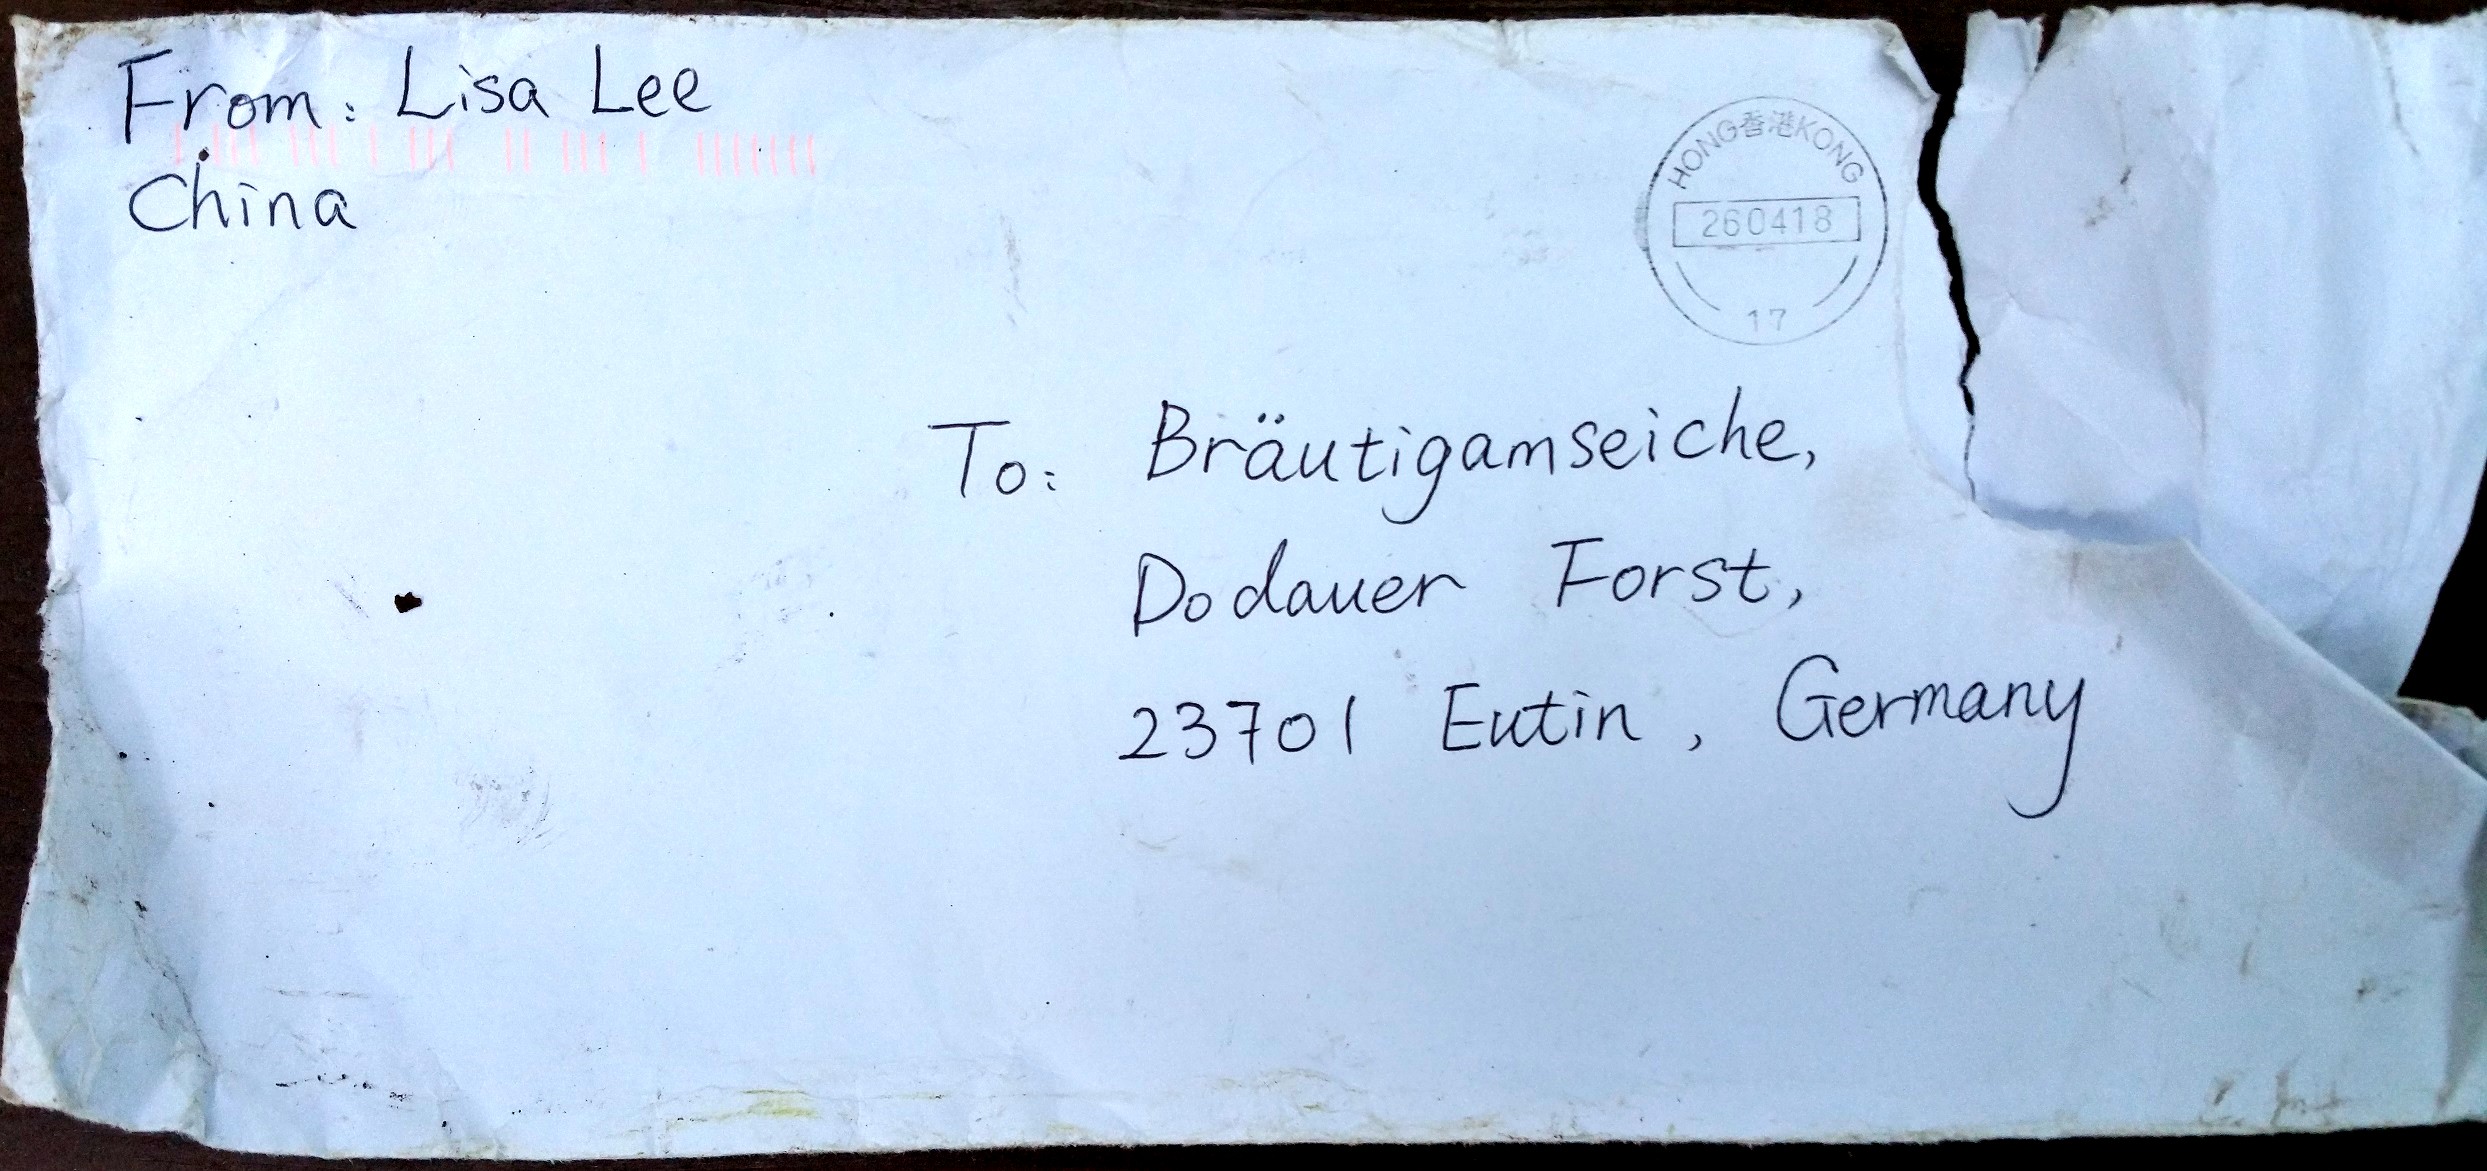 From: Lisa Lee
China
HONG香港KONG
260418
17
To: Bräutigamseiche,
Dodauer Forst,
23701 Eutin, Germany